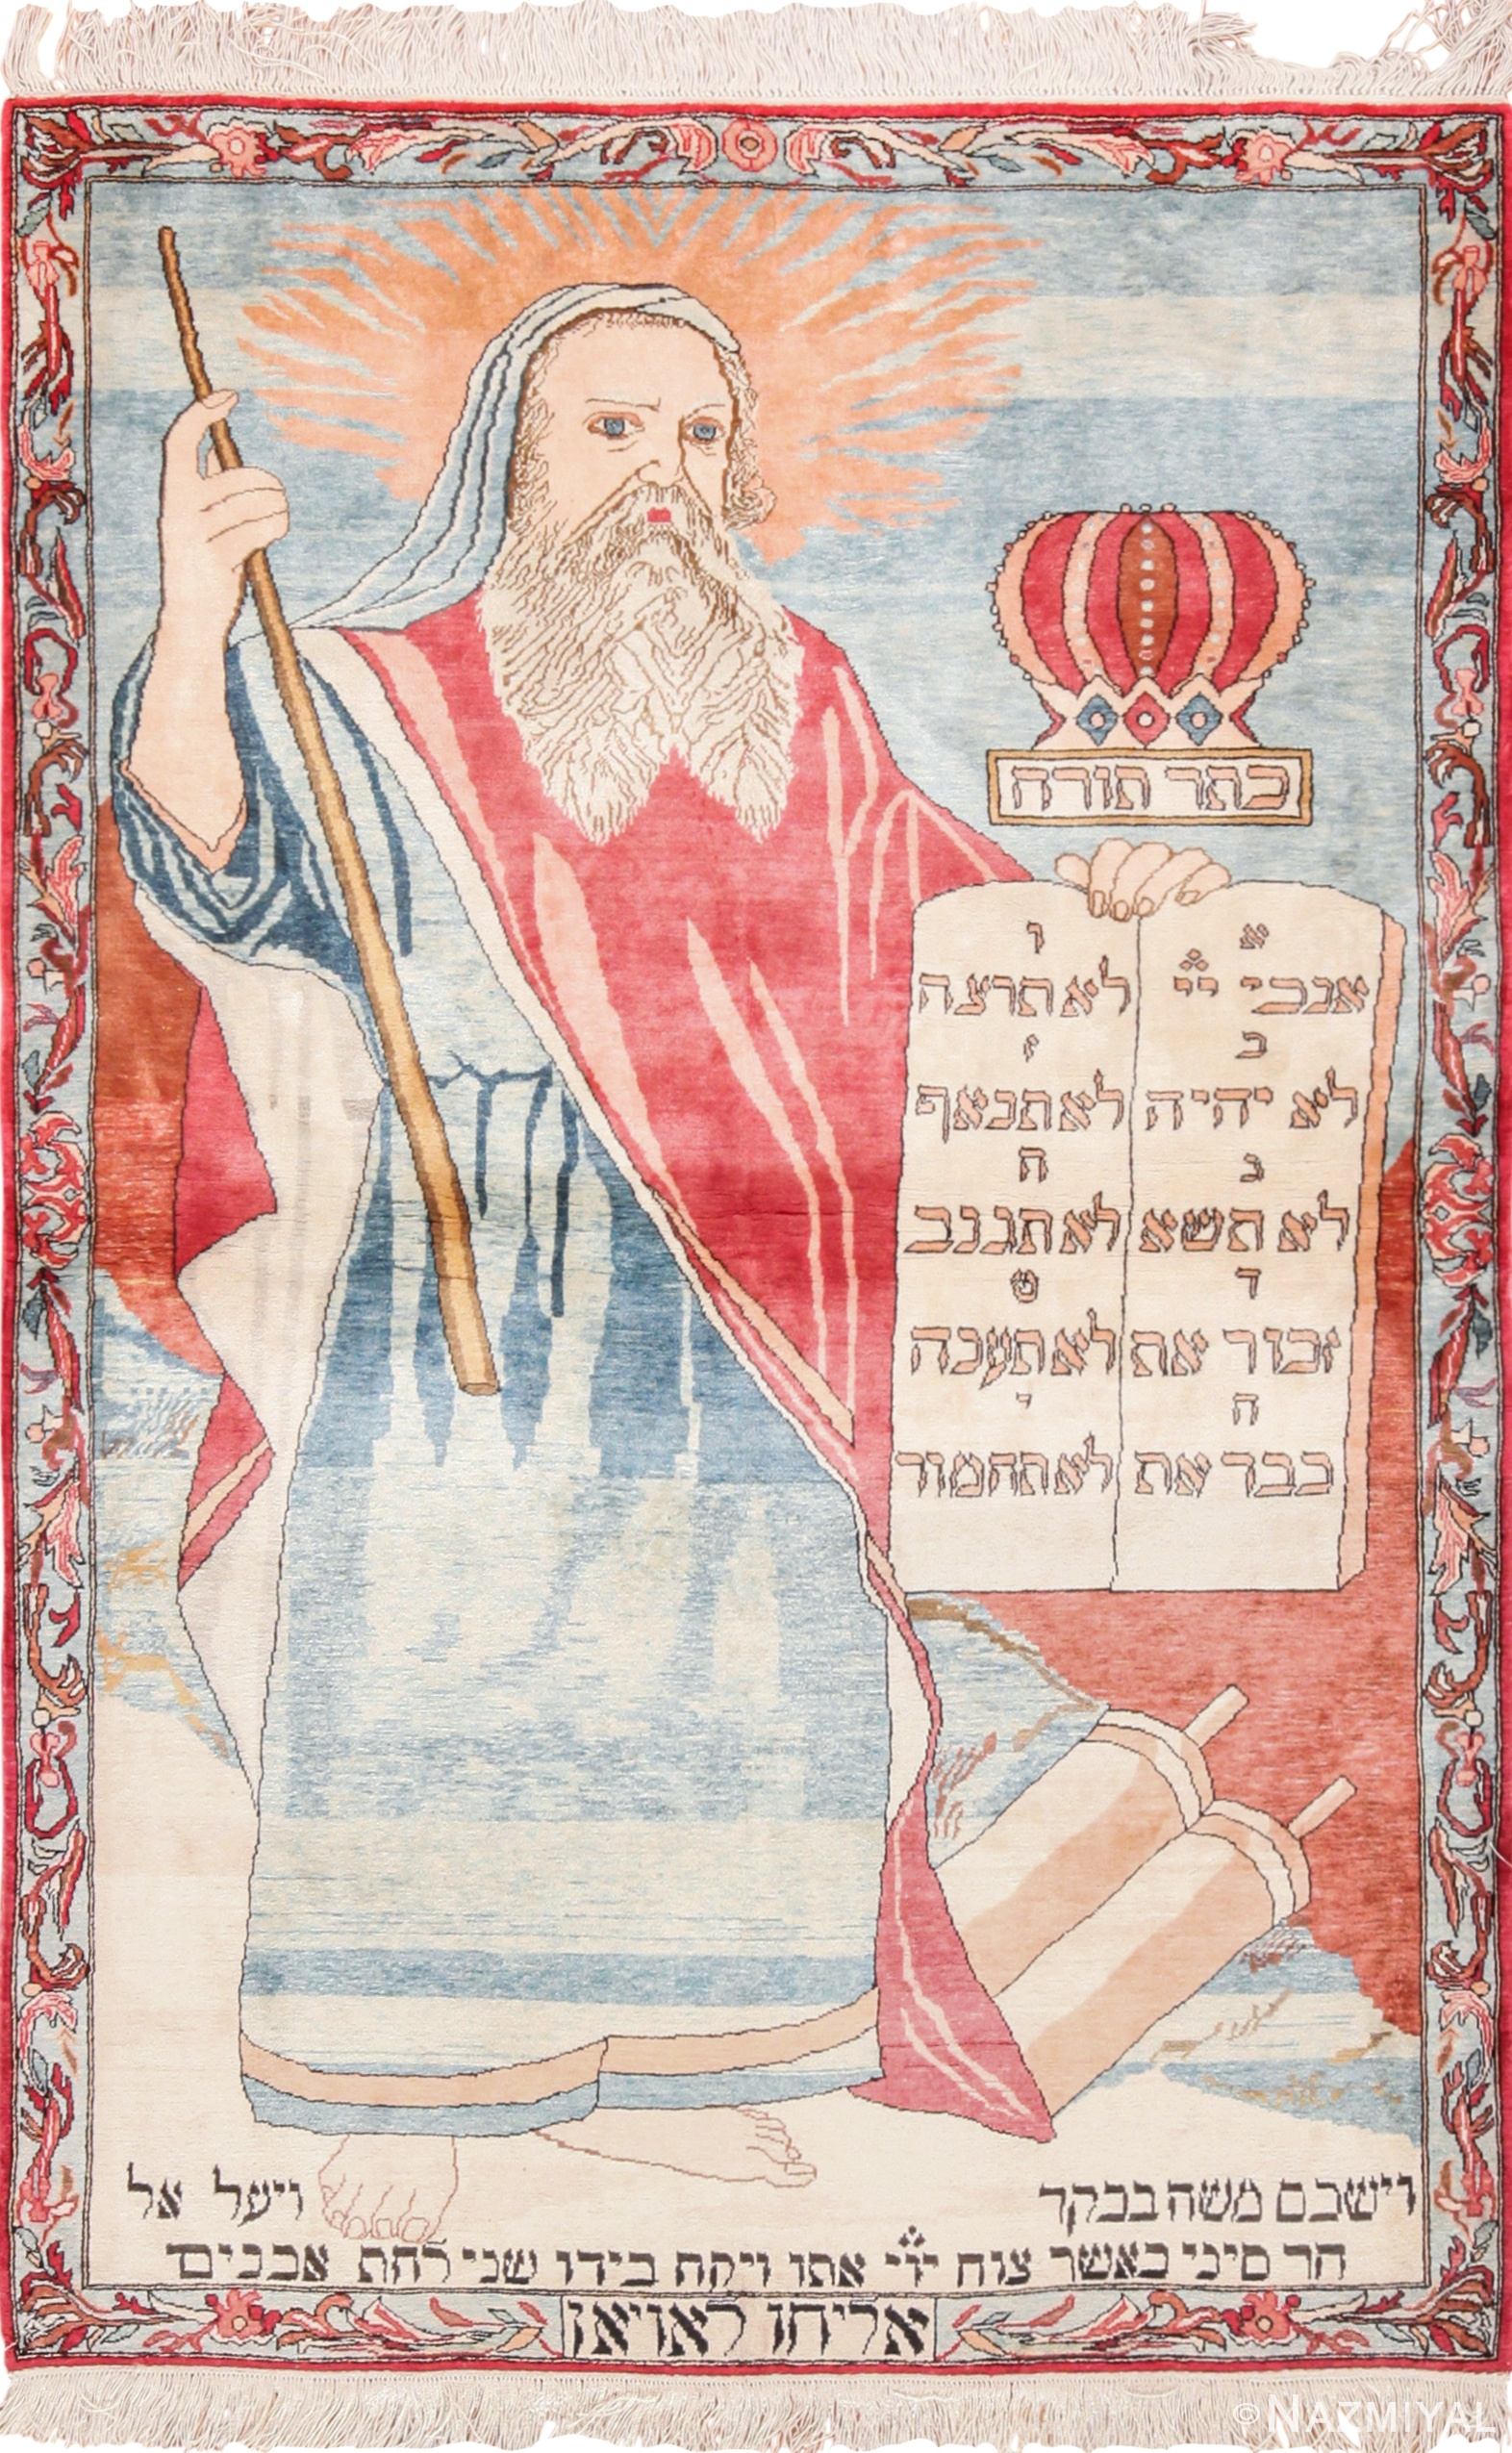 כתר תורה
א
אנכי יי
ב
לא יהיה
ג
לא תשא
ד
זכור את
ה
כבד את
ו
לא תרצח
ז
לא תנאף
ח
לא תגנב
ט
לא תענה
י
לא תחמוד
וישכם משה בבקר ויעל אל
הר סיני כאשר צוה יי אתו ויקח בידו שני לחת אבנים
אליהו לאויאן
© NAZMIYAL